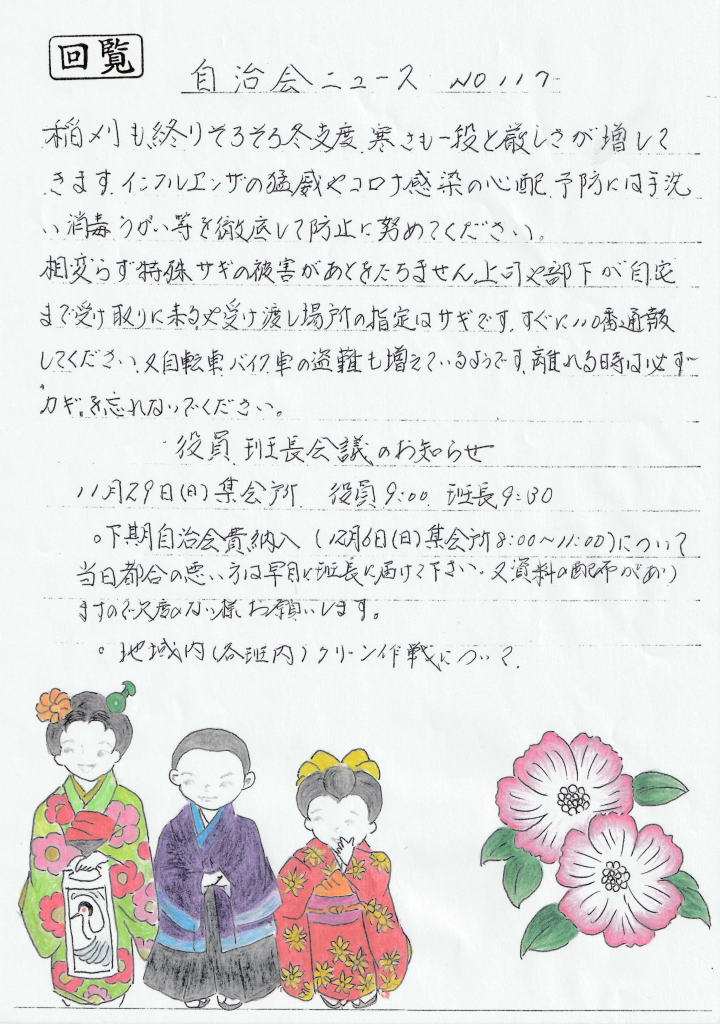 回覧
自治会ニュース NO 117
稲刈も終りそろそろ冬支度、寒さも一段と厳しさが増して
きます。インフルエンザの猛威やコロナ感染の心配、予防には手洗
い消毒うがい等を徹底して防止に努めてください。
相変らず特殊サギの被害があとをたちません。上司や部下が自宅
まで受け取りに来るや受け渡し場所の指定はサギです。すぐに110番通報
してください。又自転車、バイク車の盗難も増えているようです。離れる時は必ず
カギを忘れないでください。
役員、班長会議のお知らせ
11月29日(日)集会所 役員9:00 班長9:30
○下期自治会費納入 (12月6日(日)集会所8:00~11:00)について
当日都合の悪い方は早目に班長に届けて下さい。又資料の配布があり
ますので欠席のない様お願いします。
○地域内(各班内)クリーン作戦について。